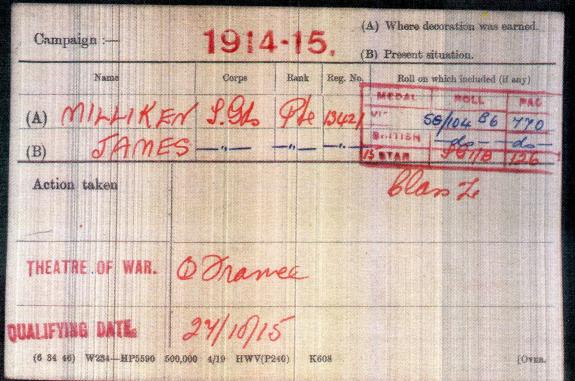 Campaign :— 1914-15. (A) Where decoration was earned.
(B) Present situation.
Name Corps Rank Reg. No. Roll on which included (if any)
MEDAL ROLL PAGE
(A) MILLIKEN S.Gds Pte 13421 VICTORY SG/104 B6 770
BRITISH -do- -do-
(B) JAMES —"— —"— —"— 15 STAR SG11B 126
Action taken Class Z
THEATRE OF WAR. France
QUALIFYING DATE. 27/10/15
(6 34 46) W234—HP5590 500,000 4/19 HWV(P240) K608 [OVER.